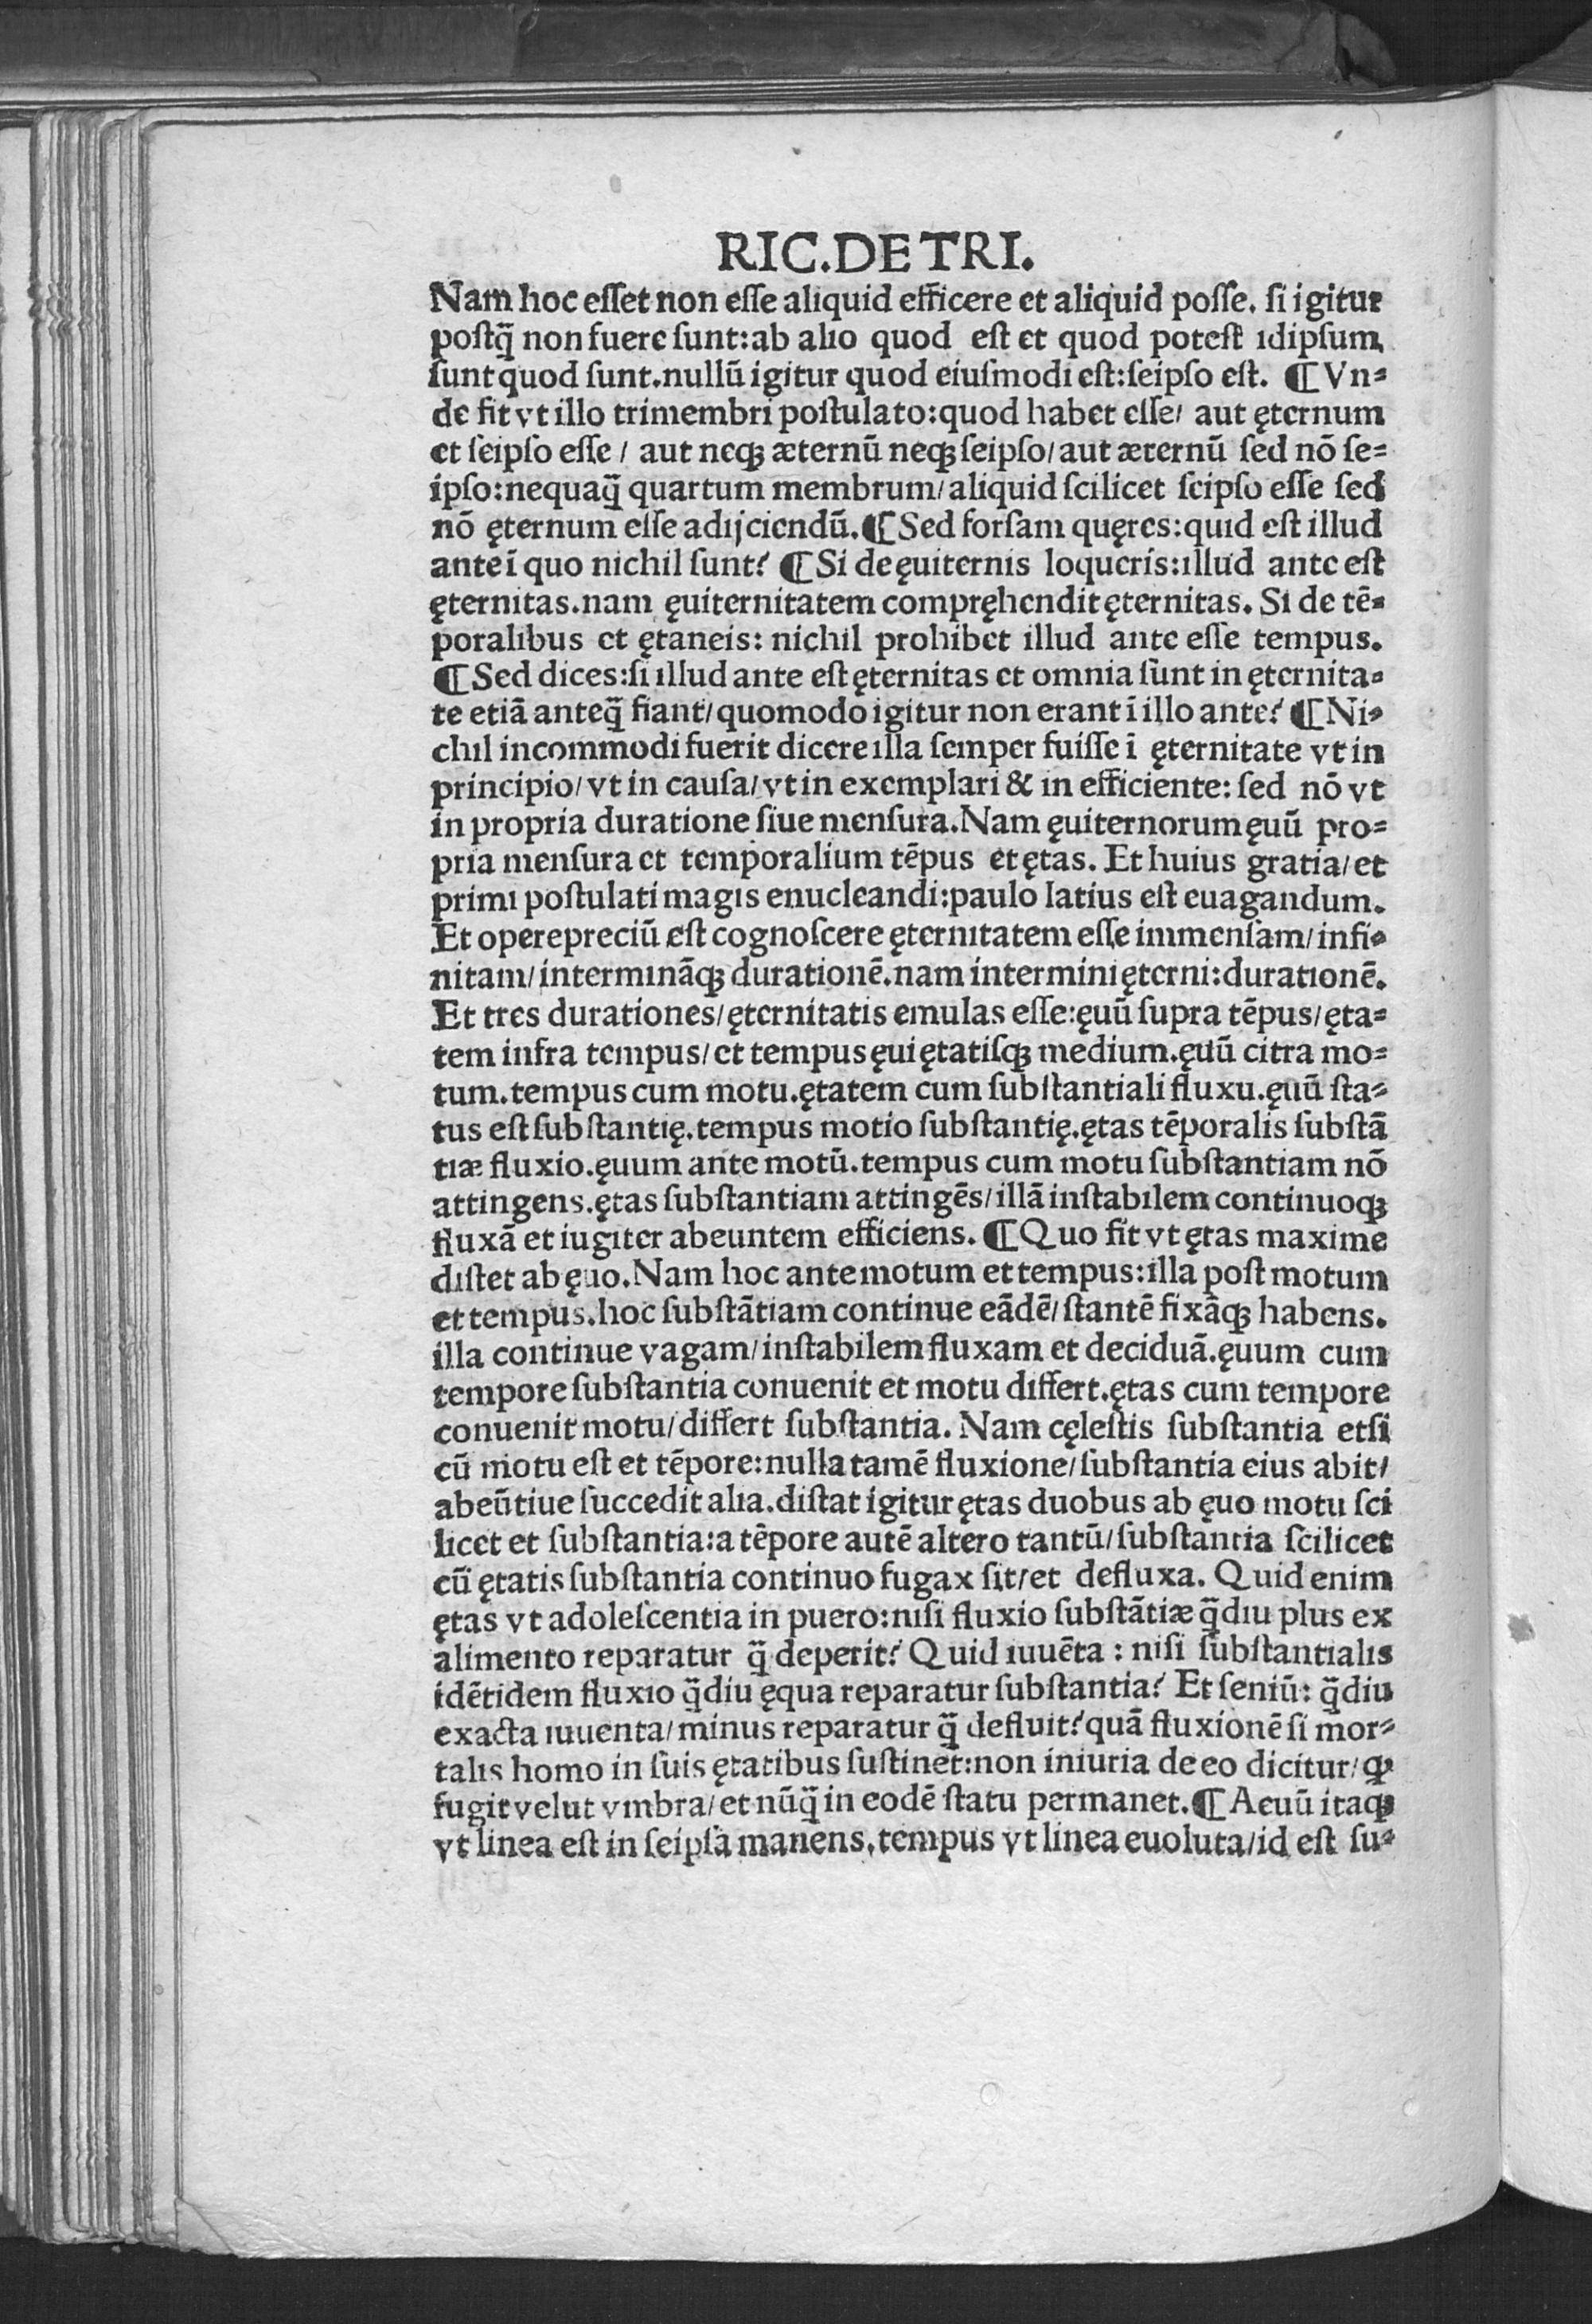 RIC.DE TRI.
Nam hoc eſſet non eſſe aliquid efficere et aliquid poſſe. ſi igitur
poſtq̃ non fuere ſunt: ab alio quod est et quod poteſt idipſum
ſunt quod ſunt. nullū igitur quod eiuſmodi eſt: ſeipſo eſt. ¶ Vn⸗
de fit vt illo trimembri poſtulato: quod habet eſſe/ aut ęternum
et ſeipſo eſſe / aut neqꝫ æternū neqꝫ ſeipſo/ aut æternū ſed nō ſe⸗
ipſo: nequaq̃ quartum membrum/ aliquid ſcilicet ſeipſo eſſe ſed
nō ęternum eſſe adijciendū. ¶ Sed forſam quęres: quid eſt illud
ante ī quo nichil ſunt? ¶ Si de ęuiternis loqueris: illud ante eſt
ęternitas. nam ęuiternitatem compręhendit ęternitas. Si de tē⸗
poralibus et ętaneis: nichil prohibet illud ante eſſe tempus.
¶ Sed dices: ſi illud ante eſt ęternitas et omnia ſunt in ęternita⸗
te etiā anteq̃ fiant/ quomodo igitur non erant ī illo ante? ¶ Ni⸗
chil incommodi fuerit dicere illa ſemper fuiſſe ī ęternitate vt in
principio/ vt in cauſa/ vt in exemplari & in efficiente: ſed nō vt
in propria duratione ſiue menſura. Nam ęuiternorum ęuū pro⸗
pria menſura et temporalium tēpus et ętas. Et huius gratia/ et
primi poſtulati magis enucleandi: paulo latius eſt euagandum.
Et operepreciū eſt cognoſcere ęternitatem eſſe immenſam/ infi⸗
nitam/ intermināqꝫ durationē. nam intermini ęterni: durationē.
Et tres durationes/ ęternitatis emulas eſſe: ęuū ſupra tēpus/ ęta⸗
tem infra tempus/ et tempus ęui ętatiſqꝫ medium. ęuū citra mo⸗
tum. tempus cum motu. ętatem cum ſubſtantiali fluxu. ęuū ſta⸗
tus eſt ſubſtantię. tempus motio ſubſtantię. ętas tēporalis ſubſtā
tiæ fluxio. ęuum ante motū. tempus cum motu ſubſtantiam nō
attingens. ętas ſubſtantiam attingēs/ illā inſtabilem continuoqꝫ
fluxā et iugiter abeuntem efficiens. ¶ Quo fit vt ętas maxime
diſtet ab ęuo. Nam hoc ante motum et tempus: illa poſt motum
et tempus. hoc ſubſtātiam continue eādē/ ſtantē fixāqꝫ habens.
illa continue vagam/ inſtabilem fluxam et deciduā. ęuum cum
tempore ſubſtantia conuenit et motu differt. ętas cum tempore
conuenit motu/ differt ſubſtantia. Nam cęleſtis ſubſtantia etſi
cū motu eſt et tēpore: nulla tamē fluxione/ ſubſtantia eius abit/
abeūtiue ſuccedit alia. diſtat igitur ętas duobus ab ęuo motu ſci
licet et ſubſtantia: a tēpore autē altero tantū/ ſubſtantia ſcilicet
cū ętatis ſubſtantia continuo fugax ſit/ et defluxa. Quid enim
ętas vt adoleſcentia in puero: niſi fluxio ſubſtātiæ q̃diu plus ex
alimento reparatur q̃ deperit? Quid iuuēta : niſi ſubſtantialis
idētidem fluxio q̃diu ęqua reparatur ſubſtantia? Et ſeniū: q̃diu
exacta iuuenta/ minus reparatur q̃ defluit? quā fluxionē ſi mor⸗
talis homo in ſuis ętatibus ſuſtinet: non iniuria de eo dicitur/ ꝙ
fugit velut vmbra/ et nūq̃ in eodē ſtatu permanet. ¶ Aeuū itaqꝫ
vt linea eſt in ſeipſa manens. tempus vt linea euoluta/ id eſt ſu⸗